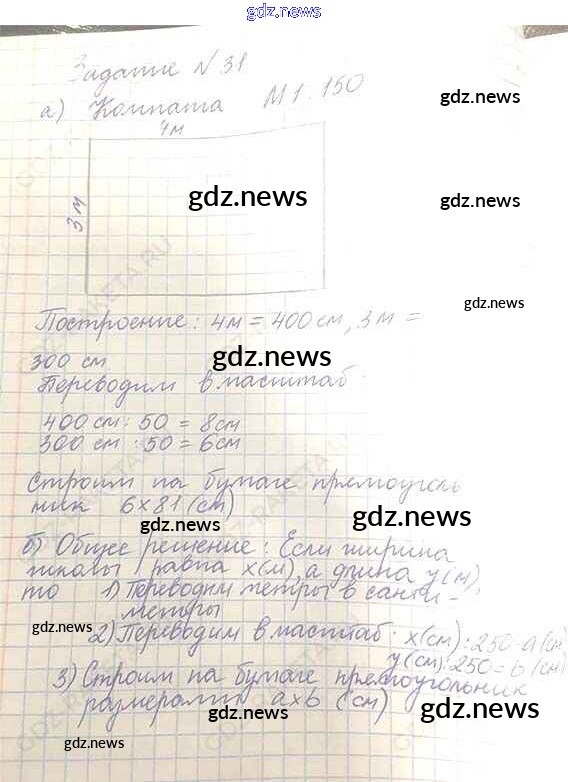 gdz.news
Задание № 31
а) Комната М 1:150
gdz.news
4м
gdz.news
gdz.news
3 м
GDZ-RAKETA.RU
gdz.news
Построение: 4м = 400 см, 3 м =
300 см
gdz.news
Переводим в масштаб:
400 см : 50 = 8 см
300 см : 50 = 6 см
Строим на бумаге прямоуголь
ник 6х81 (см)
gdz.news
gdz.news
б) Общее решение: Если ширина
школы равна х(м), а длина у(м),
то 1) Переводим метры в санти-
метры
gdz.news
2) Переводим в масштаб: х(см):250=а(см)
у(см):250=b(см)
3) Строим на бумаге прямоугольник
размерами ахb (см)
gdz.news
gdz.news
gdz.news